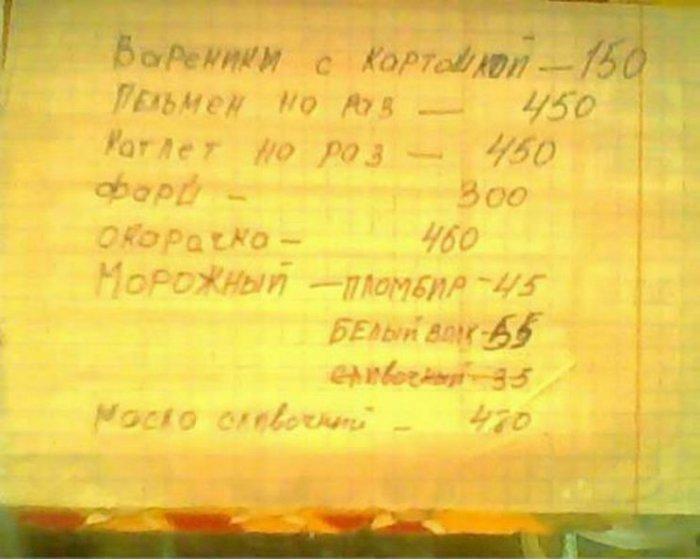 Вареники с картошкой — 150
Пельмен на раз — 450
Катлет на раз — 450
фарш — 300
окарачка — 460
Морожный — пломбир - 45
Белый волк - 55
сливочный - 35
Масло сливочний - 480